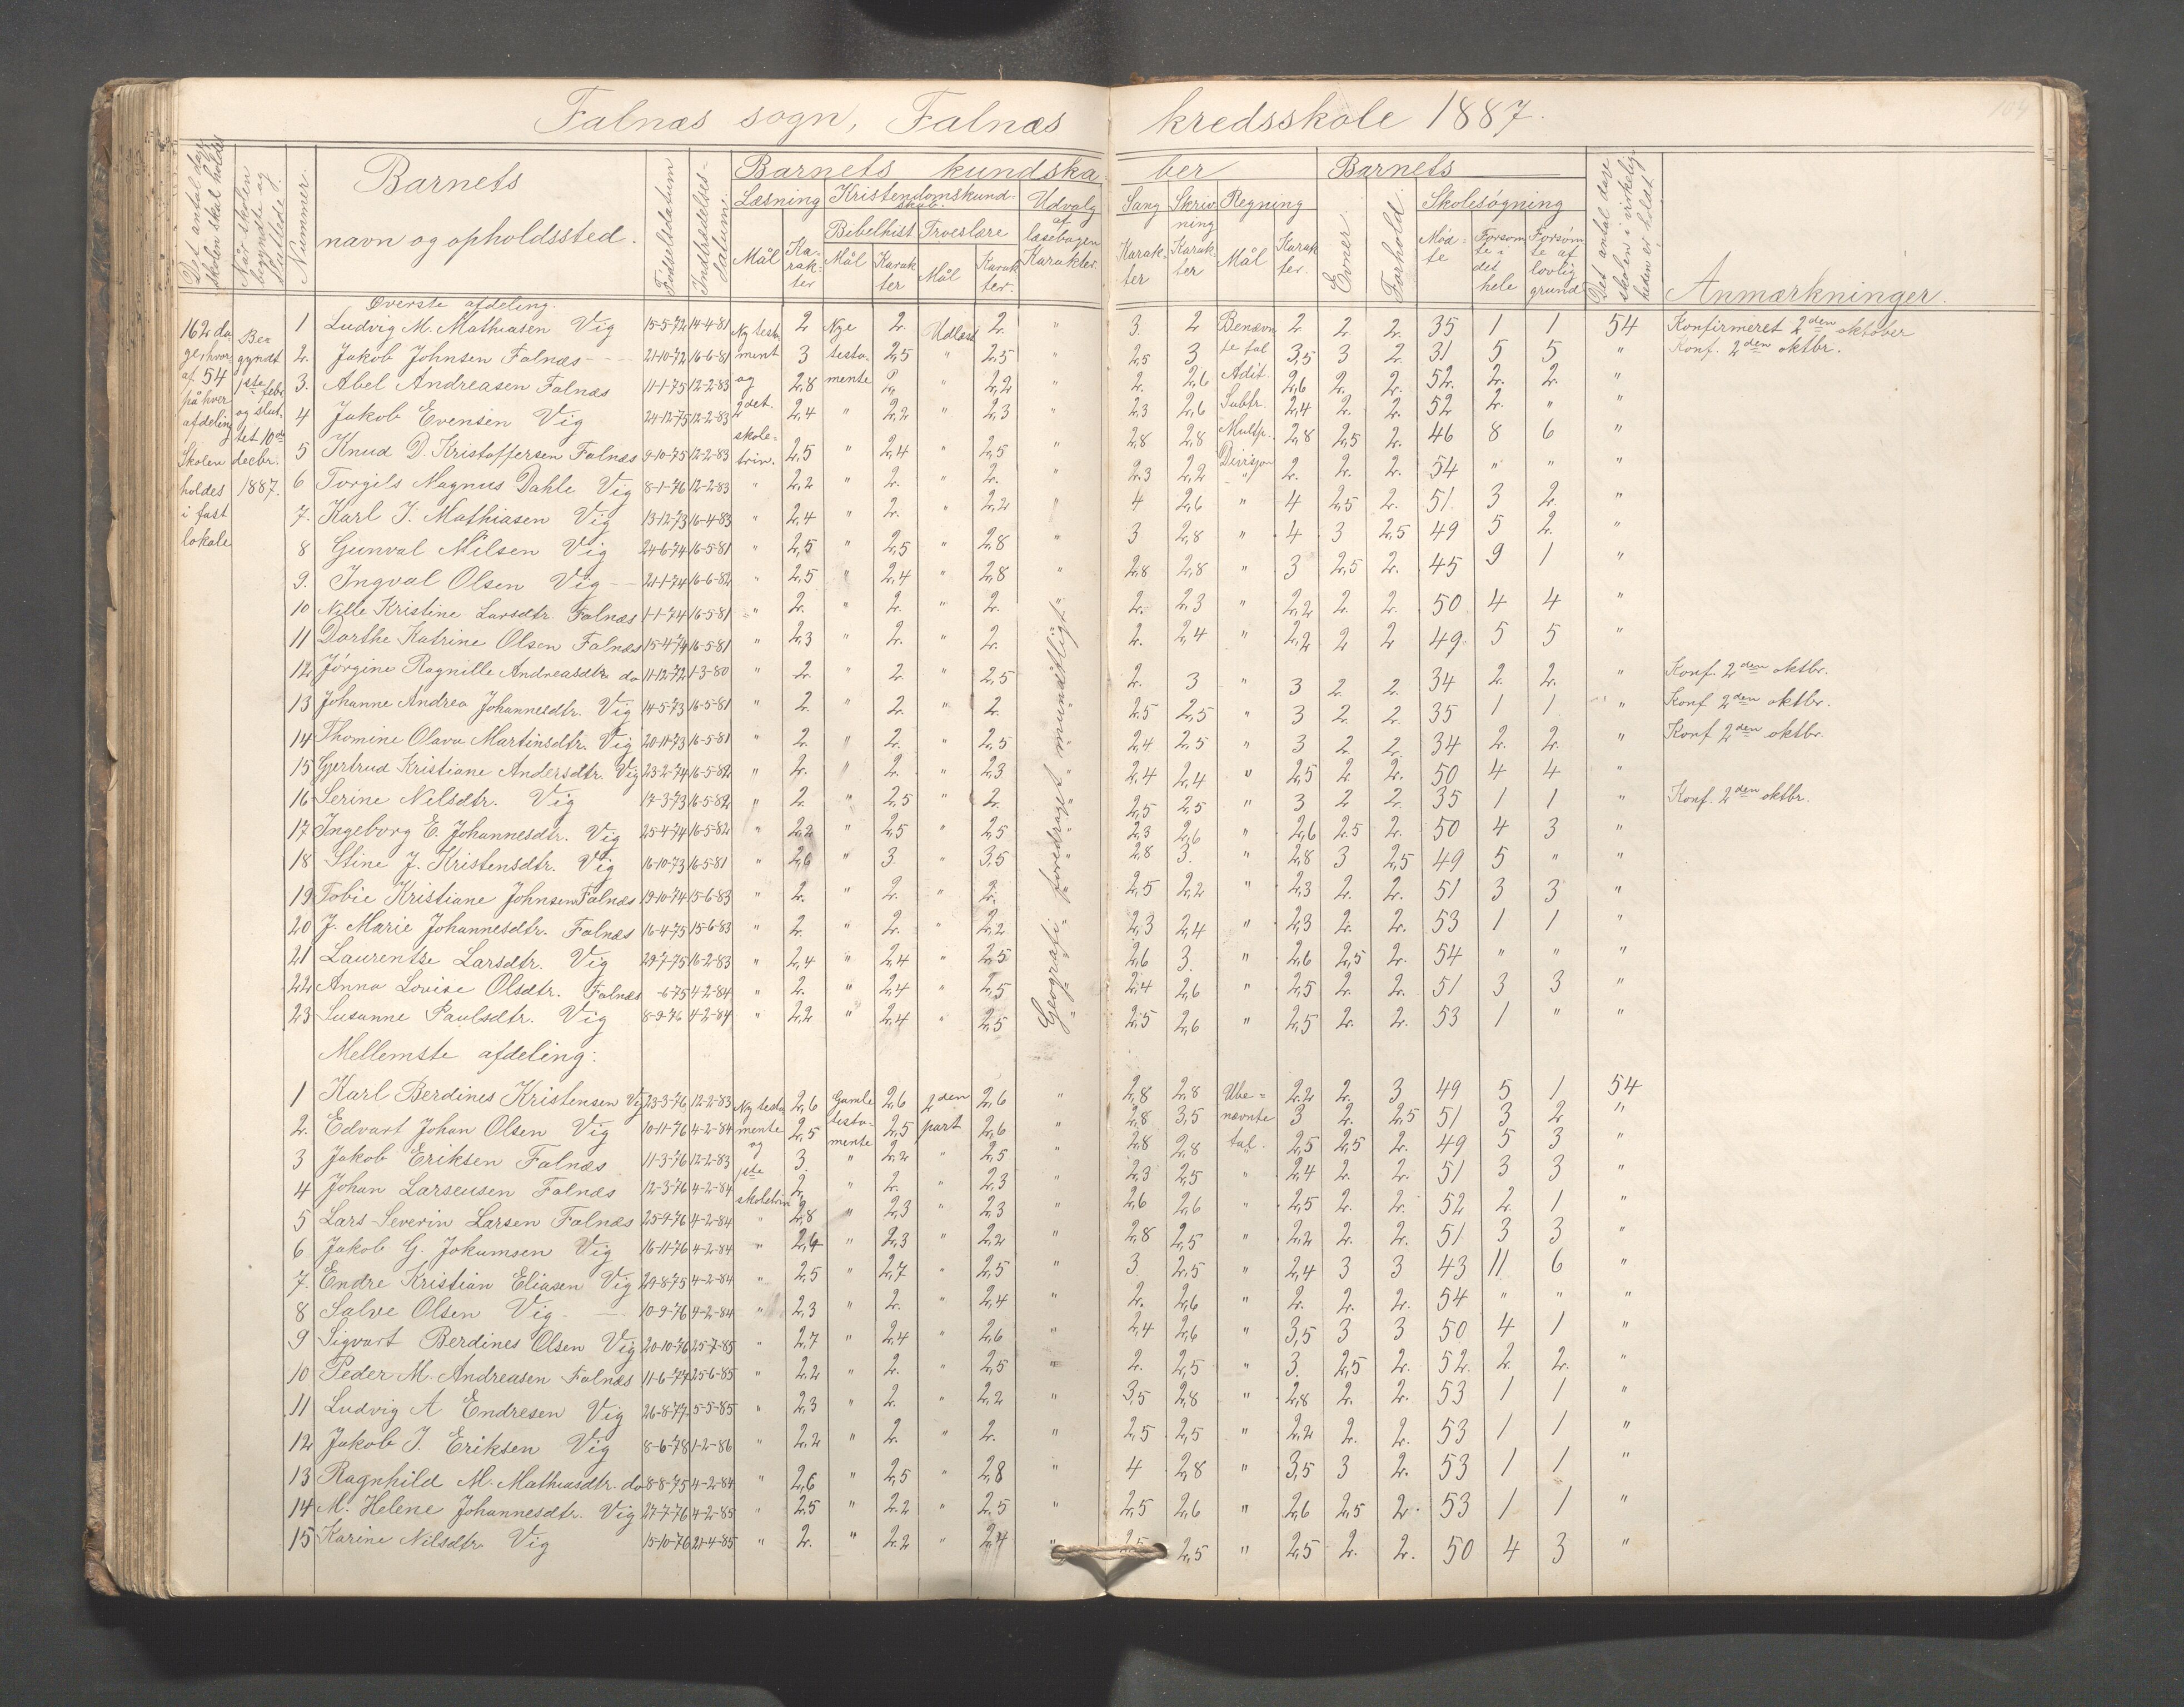 Falnæs sogn, Falnæs kredsskole 1887.
104
Det antal dage skolen skal holdes
Når skolen begyndte og sluttede.
Nummer.
Barnets navn og opholdssted.
Fødselsdatum
Indtrædelsesdatum.
Barnets kundskaber
Læsning Mål Karakter
Kristendomskundskab.
Bibelhist. Mål Karakter
Troeslære Mål Karakter.
Udvalg af læsebogen Karakter.
Sang Karakter
Skrivning Karakter
Regning Mål Karakter.
Barnets
Evner. Forhold.
Skolesøgning
Mødte
Forsømte i det hele
Forsømte af lovlig grund
Det antal dage skolen i virkeligheden er holdt.
Anmærkninger.
162 dager hvoraf 54 på hver afdeling Skolen holdes i fast lokale
Begyndt 1ste febr. og sluttet 10de decbr. 1887.
Øverste afdeling.
Ny testament og 2det skoletrin.
Nye testamente
Udlæst
Benævnte tal Adit. Subtr. Multp. Divisjon
Geografi foredraget mundtligt
1 Ludvig M. Mathiasen Vig 15-5-72 14-4-81 2 2. 2. " 3. 2 2. 2. 2. 35 1 1 54 Konfirmeret 2den oktober
2. Jakob Johnsen Falnæs 21-10-72 16-6-81 3 2,5 " 2,5 " 2,5 3 3,5 3 2. 31 5 5 " Konf. 2den oktbr.
3. Abel Andreasen Falnæs 11-1-75 12-2-83 2,8 2. " 2,2 " 2. 2,6 2,6 2. 2. 52. 2. 2. "
4 Jakob Evensen Vig 24-12-75 12-2-83 2,4 " 2,2 " 2,3 " 2,3 2,6 2,4 2. 2. 52 2. " "
5 Knud D. Kristoffersen Falnæs 9-10-75 12-2-83 2,5 " 2,4 " 2,5 " 2,8 2,8 2,8 2,5 2. 46 8 6 "
6 Torgils Magnus Dahle Vig 8-1-76 12-2-83 " 2,2 " 2. " 2. " 2,3 2,2 " 2. 2. 2. 54 " " "
7. Karl J. Mathiasen Vig 13-12-73 16-4-83 " 2,4 " 2. " 2,2 " 4 2,6 " 4 2,5 2. 51 3 2. "
8 Gunval Nilsen Vig 24-6-74 16-5-81 " 2,5 " 2,5 " 2,8 " 3 2,8 " 4 3 2,5 49 5 2. "
9. Ingval Olsen Vig 21-1-74 16-6-82 " 2,5 " 2,4 " 2,8 " 2,8 2,8 " 3 2,5 2. 45 9 1 "
10 Nille Kristine Larsdtr. Falnæs 1-1-74 16-5-81 " 2. " 2. " 2. " 2. 2,3 " 2,2 2. 2. 50 4 4 "
11 Dorthe Katrine Olsen Falnæs 15-4-74 16-5-81 " 2,3 " 2. " 2. 2. 2,4 " 2,2 2 2 49. 5 5 "
12. Jørgine Ragnille Andreasdtr. do 11-12-72 1-3-80 " 2. " 2. " 2,5 2. 3 " 3 2. 2. 34 2. 2. " Konf. 2den oktbr.
13 Johanne Andrea Johannesdtr. Vig 14-5-73 16-5-81 " 2. " 2. " 2. 2,5 2,5 " 3 2. 2. 35 1 1 " Konf 2den oktbr.
14 Thomine Olava Martinsdtr. Vig 20-11-73 16-5-81 " 2. " 2. " 2,5 2,4 2,5 " 3 2. 2. 34 2. 2. " Konf 2den oktbr.
15 Gjertrud Kristiane Andersdtr. Vig 23-2-74 16-5-82 " 2. " 2. " 2,3 2,4 2,4 " 2,5 2 2. 50 4 4 "
16 Serine Nilsdtr. Vig 17-3-73 16-5-82 " 2. " 2,5 " 2. 2,5 2,5 " 3 2 2. 35 1 1 " Konf. 2den oktbr.
17 Ingeborg E. Johannesdtr. Vig 25-4-74 16-5-82 " 2,2 " 2,5 " 2,5 2,3 2,6 " 2,6 2.5 2. 50 4 3 "
18 Stine J. Kristensdtr. Vig 16-10-73 16-5-81 " 2,6 " 3. " 3.5 2,8 3. " 2,8 3 2,5 49 5 " "
19 Tobie Kristiane Johnsen Falnæs 19-10-74 15-6-83 " 2. " 2. " 2. 2,5 2,2 " 2,3 2. 2. 51 3 3 "
20 J. Marie Johannesdtr. Falnæs 16-4-75 15-6-83 " 2. " 2. " 2,2 2,3 2,4 " 2,3 2. 2. 53 1 1 "
21 Laurentse Larsdtr. Vig 29-7-75 16-2-83 " 2,4 " 2,4 " 2,5 2,6 3. " 2,6 2,5 2. 54 " " "
22 Anna Lovise Olsdtr. Falnæs -6-75 4-2-84 " 2. " 2,4 " 2,5 2,4 2,6 " 2,5 2. 2. 51 3 3 "
23 Susanne Paulsdtr. Vig 8-9-76 4-2-84 " 2,2 " 2,4 " 2,5 2,5 2,6 " 2,5 2. 2. 53 1 " "
Mellemste afdeling.
Ny testamente og 1ste skoletrin
Gamle testamente
2den part
Ubenævnte tal.
1 Karl Berdines Kristensen Vig 23-3-76 12-2-83 2,6 2,6 2,6 " 2,8 2,8 2.2 2. 3 49 5 1 54
2. Edvart Johan Olsen Vig 10-11-76 4-2-84 2,5 2,5 2,6 " 2,8 3,5 3 2. 2,5 51 3 2. "
3 Jakob Eriksen Falnæs 11-3-76 12-2-83 3. " 2,2 " 2,5 " 2,8 2,8 2,5 2,5 2. 49 5 3 "
4 Johan Larsensen Falnæs 12-3-76 4-2-84 2. " 2. " 2,3 " 2,3 2,5 " 2,4 2. 2. 51 3 3 "
5 Lars Severin Larsen Falnæs 25-9-76 4-2-84 " 2,8 " 2,3 " 2,3 " 2,6 2,6 " 2,5 2. 2. 52 2. 1 "
6 Jakob G. Jokumsen Vig 16-11-76 4-2-84 " 2,4 " 2,3 " 2,2 " 2,8 2,5 " 2,2 2. 2. 51 3 3 "
7. Endre Kristian Eliasen Vig 29-8-75 4-2-84 " 2,5 " 2,7 " 2,5 " 3 2,5 " 2,4 3 3 43 11 6 "
8 Salve Olsen Vig 10-9-76 4-2-84 " 2,3 " 2. " 2,4 " 2. 2,6 " 2. 2. 2. 54 " " "
9 Sigvart Berdines Olsen Vig 20-10-76 25-7-85 " 2,7 " 2,4 " 2,6 " 2,4 2,6 " 3,5 3 3 50 4 1 "
10 Peder M. Andreasen Falnæs 11-6-77 25-6-85 " 2.2 " 2. " 2,5 " 2. 2,5 " 3. 2,5 2. 52. 2. 2. "
11 Ludvig A Endresen Vig 26-8-77 5-5-85 " 2,3 " 2. " 2,2 " 3,5 2,8 " 2,8 2. 2. 53 1 1 "
12 Jakob J. Eriksen Vig 8-6-78 1-2-86 " 2.2 " 2. " 2. " 2,5 2,5 " 2,2 2. 2. 53 1 1 "
13 Ragnhild M. Mathiasdtr. do 8-8-75 4-2-84 " 2,6 " 2,5 " 2,8 " 4 2,8 " 3,5 3 2. 53 1 1 "
14 M. Helene Johannesdtr. Vig 27-7-76 4-2-85 " 2,5 " 2.2 " 2,5 " 2,5 2,6 " 2,6 2,5 2. 53 1 1 "
15 Karine Nilsdtr Vig 15-10-76 21-4-85 " 2. " 2.2 " 2,4 " 2,5 2,5 " 2,5 2. 2. 50 4 3 "